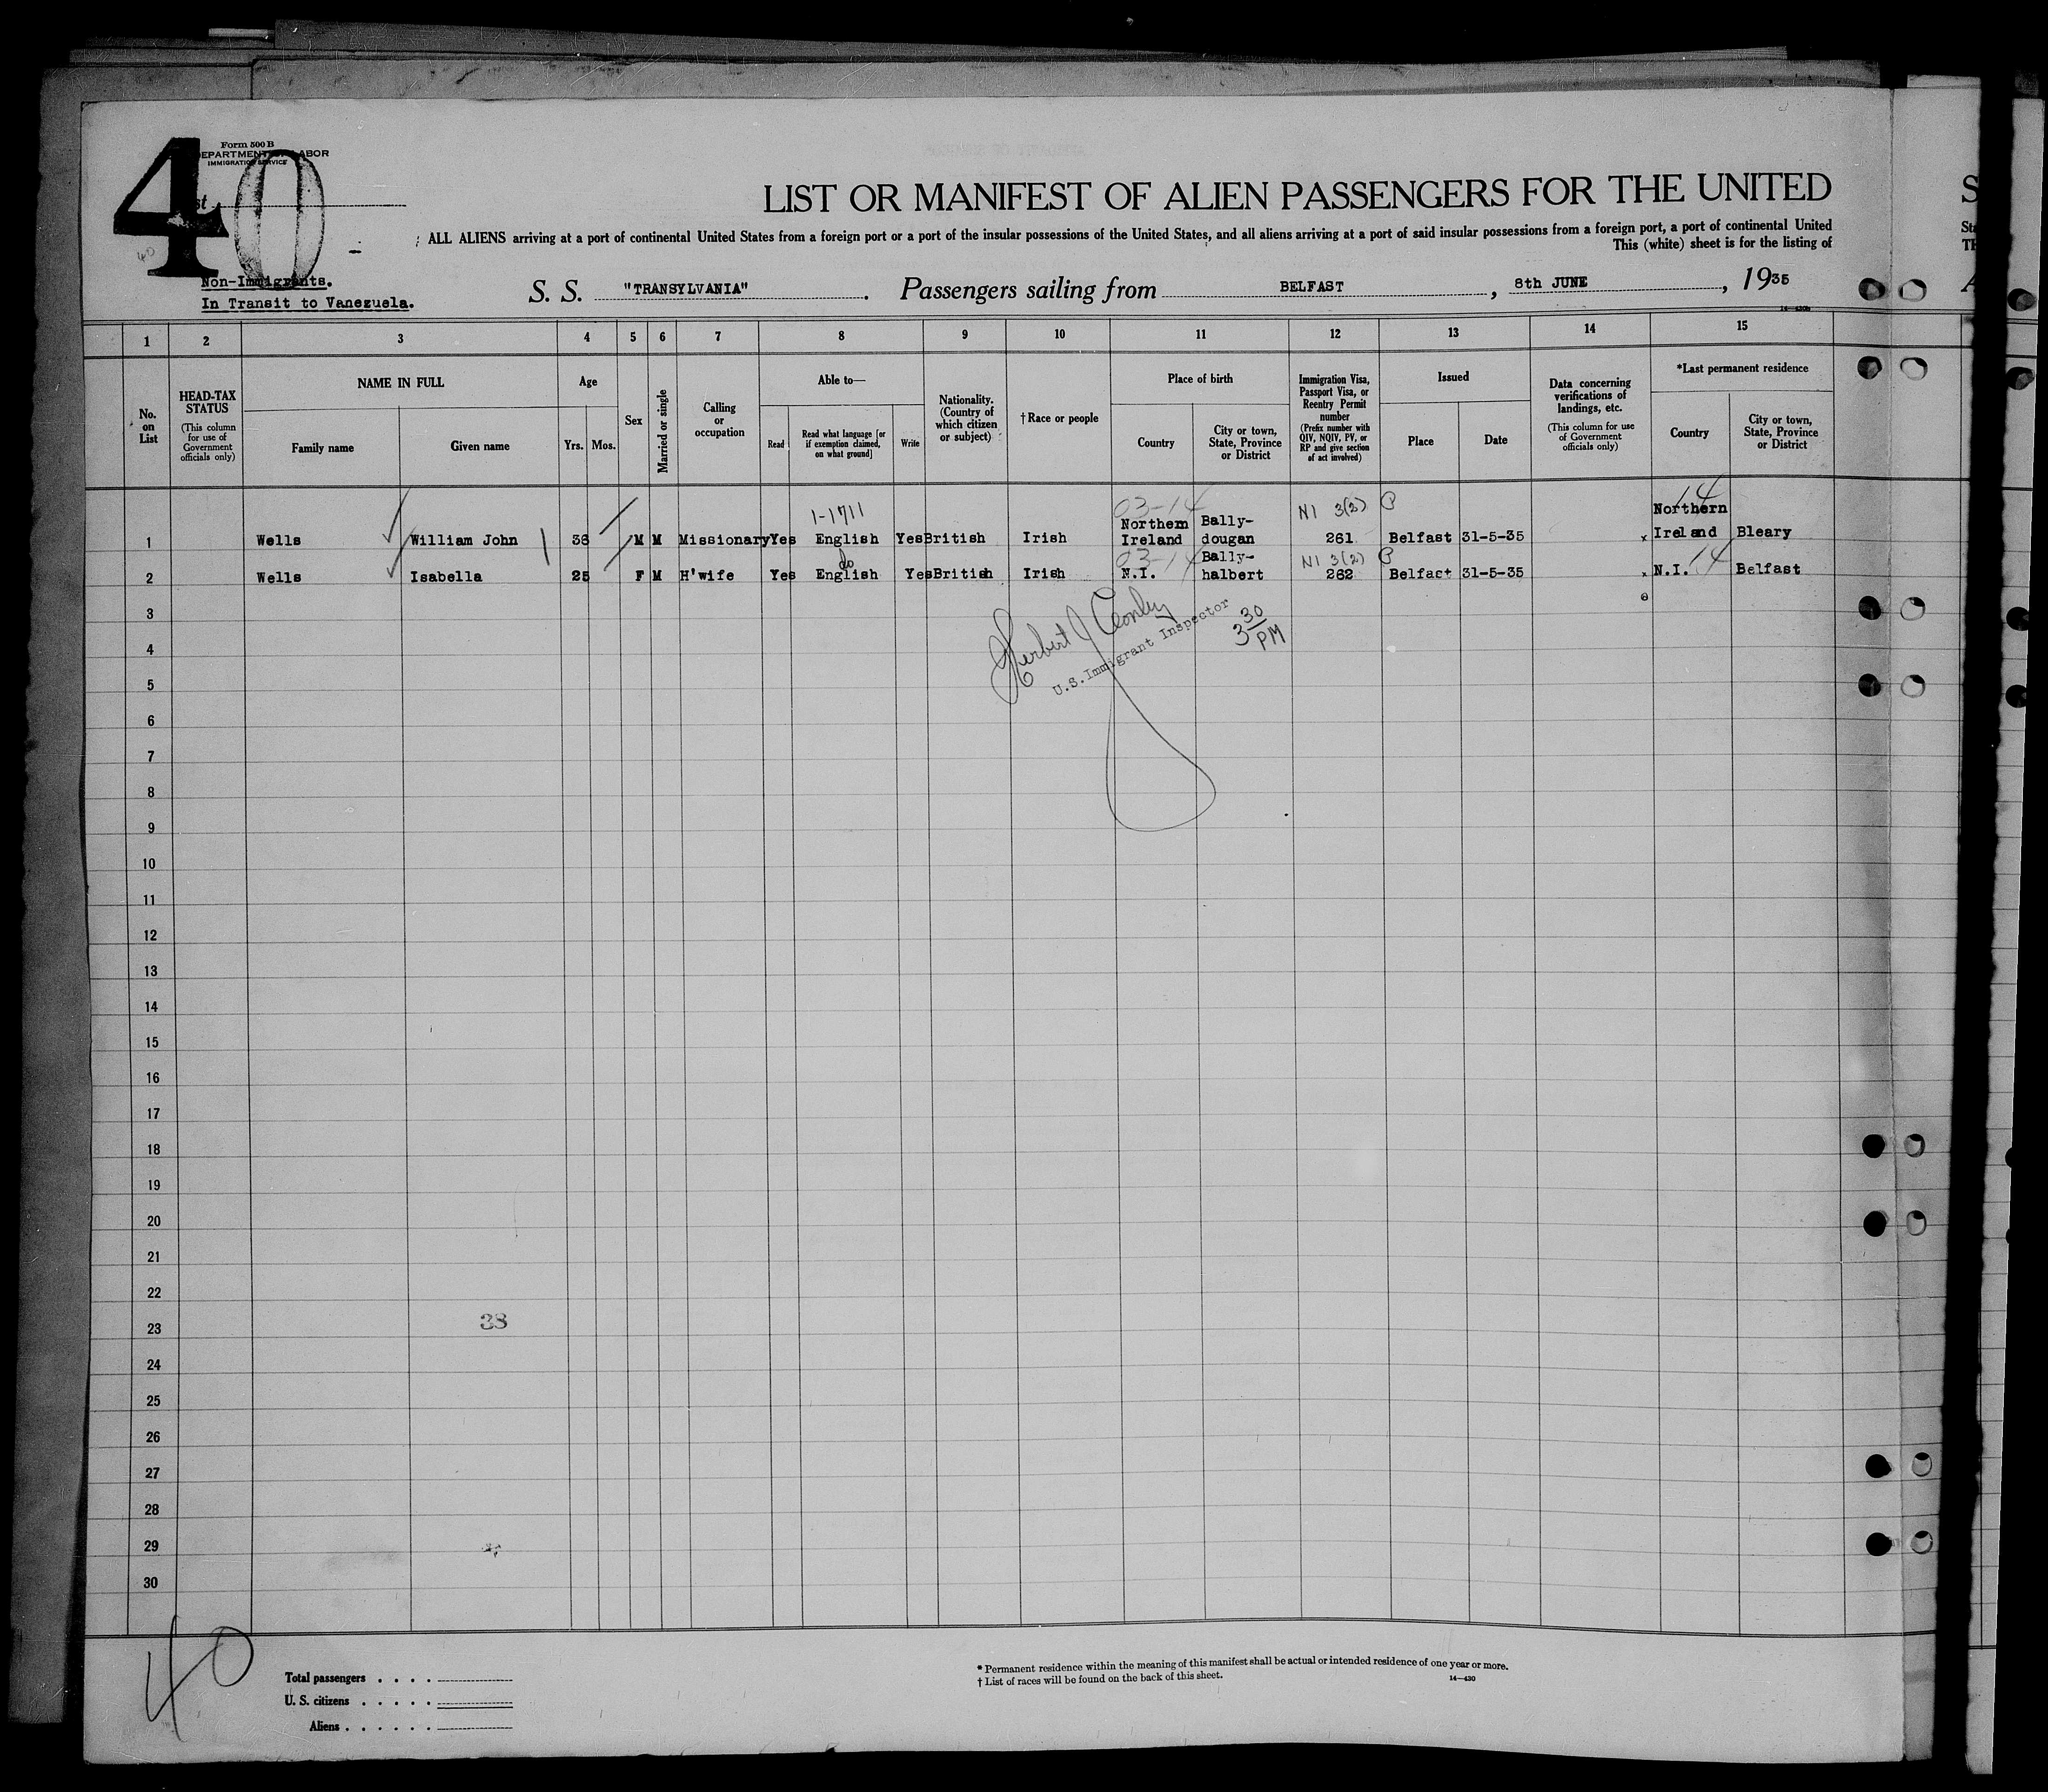 40
Form 500 B
DEPARTMENT OF LABOR
IMMIGRATION SERVICE
40
Non-Immigrants.
In Transit to Vanezuela.
LIST OR MANIFEST OF ALIEN PASSENGERS FOR THE UNITED
ALL ALIENS arriving at a port of continental United States from a foreign port or a port of the insular possessions of the United States, and all aliens arriving at a port of said insular possessions from a foreign port, a port of continental United
This (white) sheet is for the listing of
S. S. "TRANSYLVANIA". Passengers sailing from BELFAST, 8th JUNE, 1935
1 2 3 4 5 6 7 8 9 10 11 12 13 14 15
No. on List
HEAD-TAX STATUS
(This column for use of Government officials only)
NAME IN FULL
Family name
Given name
Age
Yrs. Mos.
Sex
Married or single
Calling or occupation
Able to—
Read
Read what language [or if exemption claimed, on what ground]
Write
Nationality. (Country of which citizen or subject)
†Race or people
Place of birth
Country
City or town, State, Province or District
Immigration Visa, Passport Visa, or Reentry Permit number
(Prefix number with QIV, NQIV, PV, or RP and give section of act involved)
Issued
Place
Date
Data concerning verifications of landings, etc.
(This column for use of Government officials only)
*Last permanent residence
Country
City or town, State, Province or District
1-1711 03-14 N1 3(2) P 14
1 Wells William John 36 M M Missionary Yes English Yes British Irish Northern Ireland Bally-dougan 261 Belfast 31-5-35 x Northern Ireland Bleary
do 03-14 N1 3(2) P 14
2 Wells Isabella 25 F M H'wife Yes English Yes British Irish N.I. Bally-halbert 262 Belfast 31-5-35 x N.I. Belfast
3
4
5
6
7
8
9
10
11
12
13
14
15
16
17
18
19
20
21
22
23
24
25
26
27
28
29
30
U.S. Immigrant Inspector
3 30 PM
38
40
Total passengers
U. S. citizens
Aliens
* Permanent residence within the meaning of this manifest shall be actual or intended residence of one year or more.
† List of races will be found on the back of this sheet.
14—430